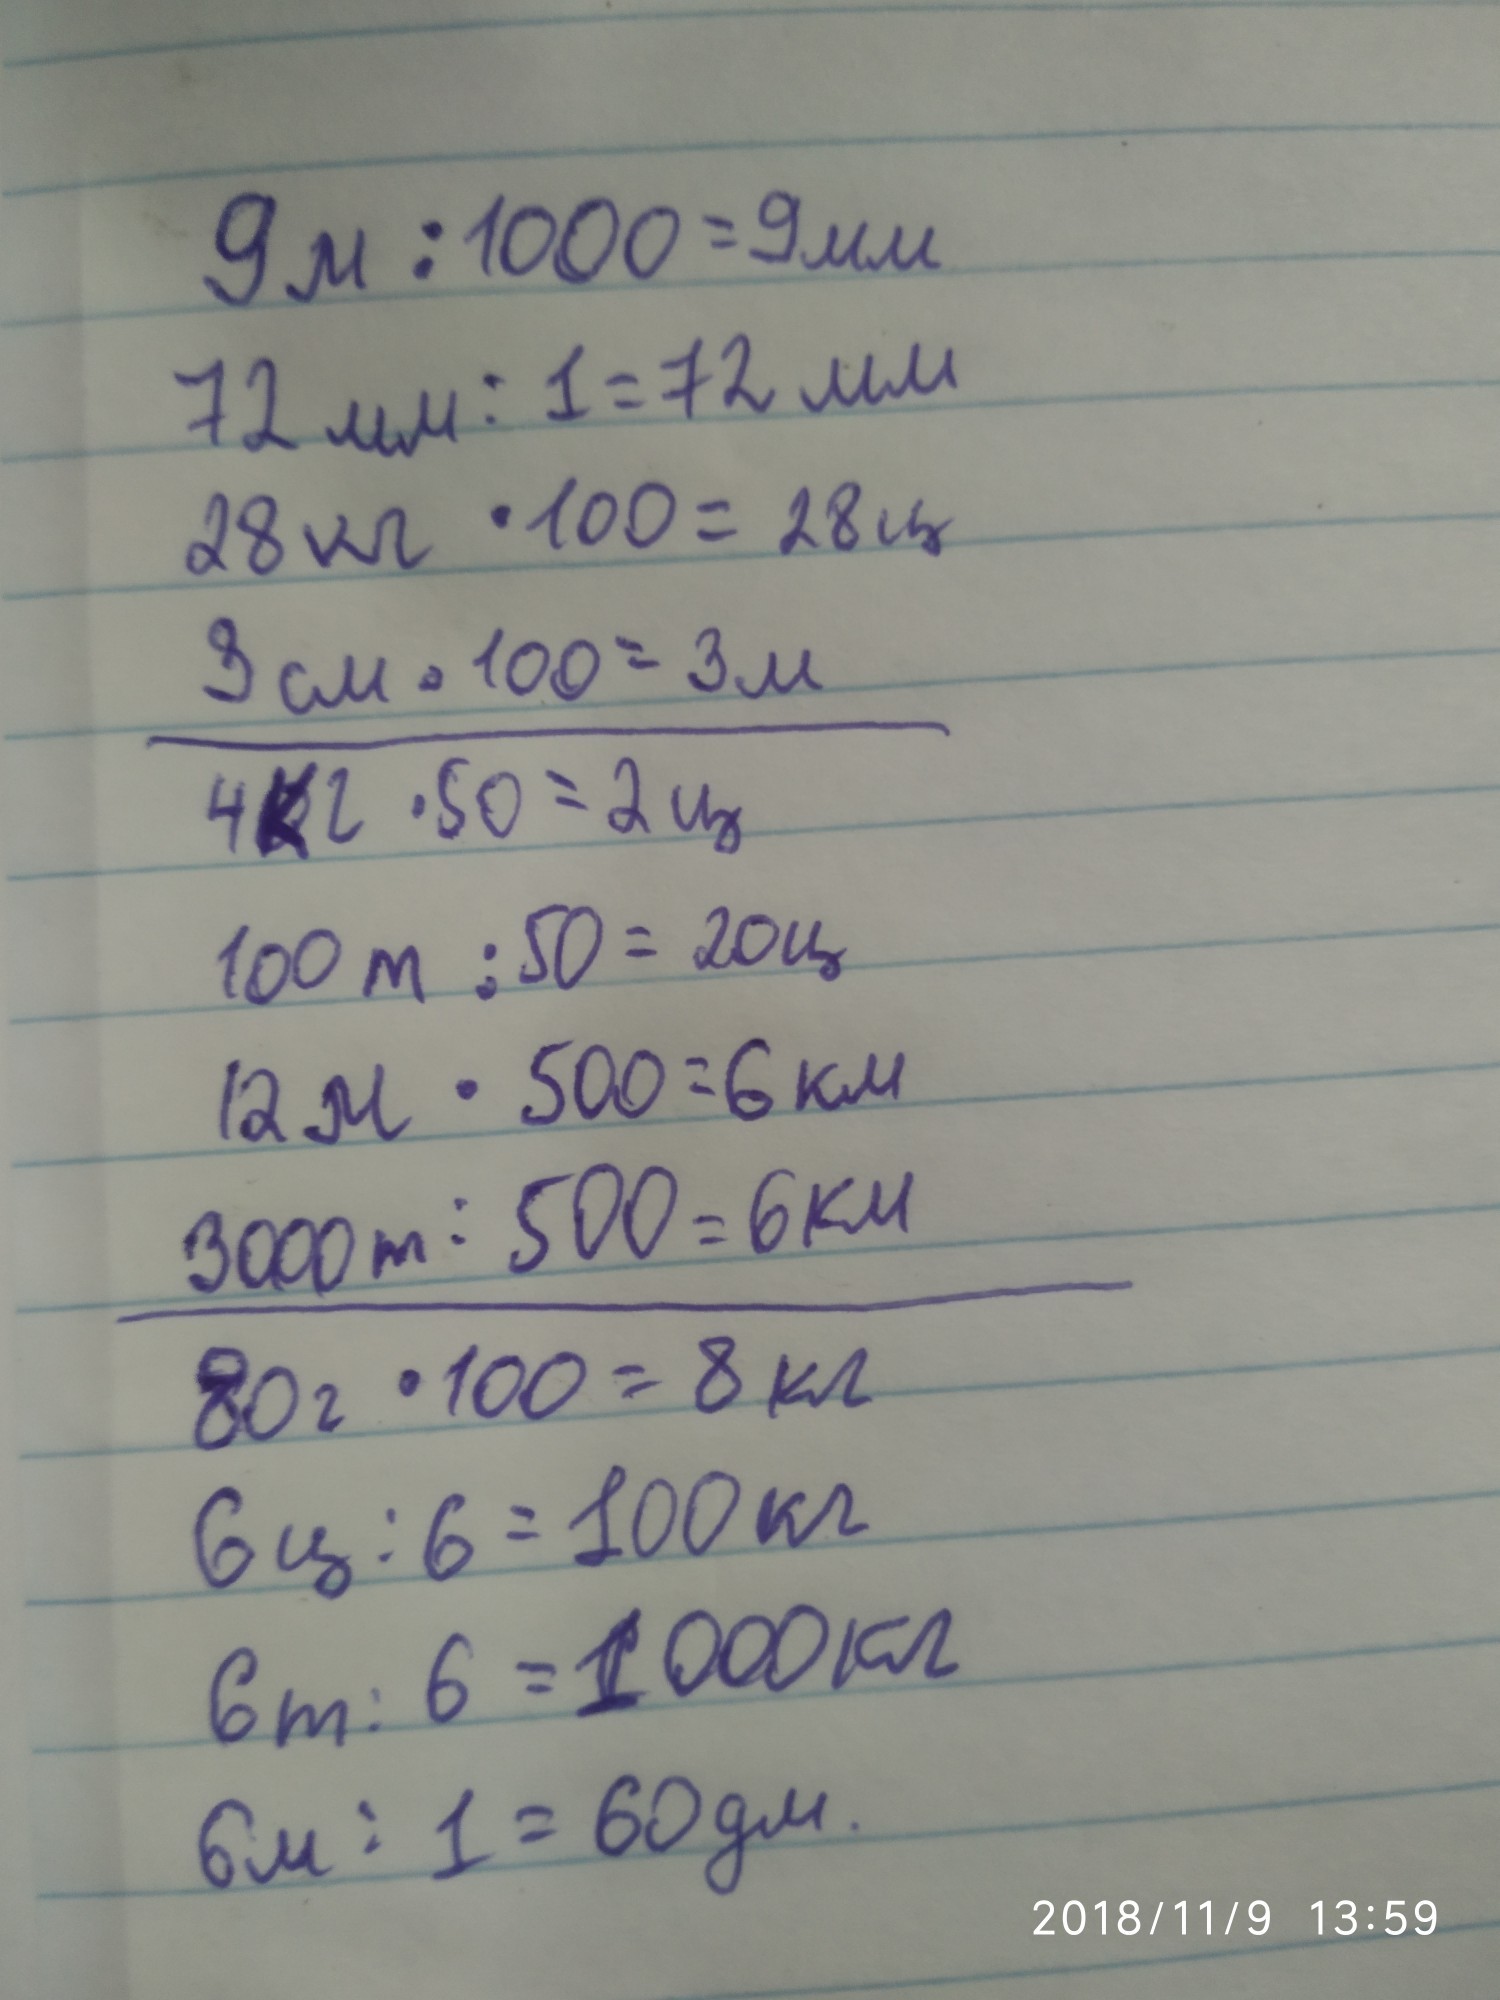 9м : 1000 = 9мм
72 мм : 1 = 72 мм
28 кг · 100 = 28 ц
3 см · 100 = 3 м
4кг · 50 = 2 ц
100 т : 50 = 20ц
12 м · 500 = 6 км
3000т : 500 = 6 км
80г · 100 = 8 кг
6 ц : 6 = 100 кг
6т : 6 = 1000кг
6м : 1 = 60 дм.
2018/11/9 13:59